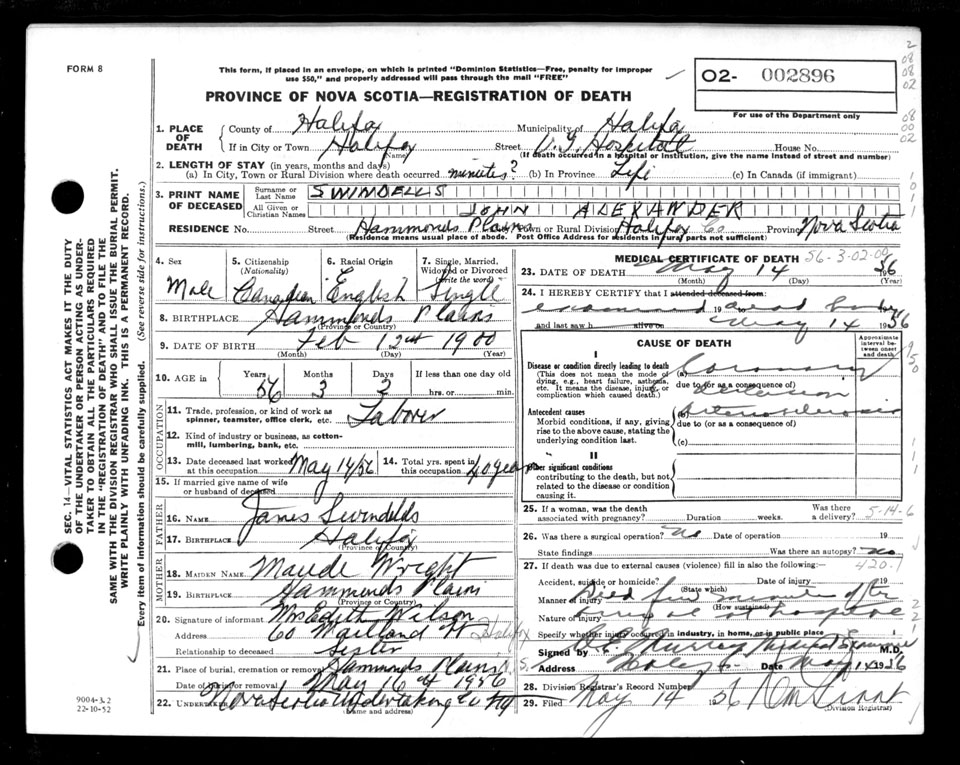 FORM 8
This form, if placed in an envelope, on which is printed "Dominion Statistics—Free, penalty for improper
use $50," and properly addressed will pass through the mail "FREE"
O2- 002896
For use of the Department only
PROVINCE OF NOVA SCOTIA—REGISTRATION OF DEATH
1. PLACE OF DEATH
County of Halifax Municipality of Halifax
If in City or Town Halifax (Name) Street V. G. Hospital House No.
(If death occurred in a hospital or institution, give the name instead of street and number)
2. LENGTH OF STAY (in years, months and days)
(a) In City, Town or Rural Division where death occurred minutes? (b) In Province Life (c) In Canada (if immigrant)
3. PRINT NAME OF DECEASED
Surname or Last Name SWINDELLS
All Given or Christian Names JOHN ALEXANDER
RESIDENCE No. Street Hammonds Plains Town or Rural Division Halifax Co Province Nova Scotia
(Residence means usual place of abode. Post Office Address for residents in rural parts not sufficient)
4. Sex Male
5. Citizenship (Nationality) Canadian
6. Racial Origin English
7. Single, Married, Widowed or Divorced (write the word) Single
8. BIRTHPLACE Hammonds Plains
(Province or Country)
9. DATE OF BIRTH Feb 12 1900
(Month) (Day) (Year)
10. AGE in Years 56 Months 3 Days 2 If less than one day old hrs. or min.
OCCUPATION
11. Trade, profession, or kind of work as spinner, teamster, office clerk, etc. Laborer
12. Kind of industry or business, as cotton-mill, lumbering, bank, etc.
13. Date deceased last worked at this occupation May 14/56
14. Total yrs. spent in this occupation 40 years
15. If married give name of wife or husband of deceased
FATHER
16. NAME James Swindells
17. BIRTHPLACE Halifax
(Province or Country)
MOTHER
18. MAIDEN NAME Maude Wright
19. BIRTHPLACE Hammonds Plains
(Province or Country)
20. Signature of informant Mrs Edith Wilson
Address 60 Maitland St Halifax
Relationship to deceased Sister
21. Place of burial, cremation or removal Hammonds Plains
Date of burial or removal May 16 1956
22. UNDERTAKER Nova Scotia Undertaking Co
(Name and address)
MEDICAL CERTIFICATE OF DEATH 56-3-02-00
23. DATE OF DEATH May 14 56
(Month) (Day) (Year)
24. I HEREBY CERTIFY that I attended deceased from:
examined 19 dead body
and last saw h alive on May 14 1956
CAUSE OF DEATH
Approximate interval between onset and death
I
Disease or condition directly leading to death
(This does not mean the mode of dying, e.g., heart failure, asthenia, etc. It means the disease, injury, or complication which caused death.)
(a) Coronary
due to (or as a consequence of)
Antecedent causes
Morbid conditions, if any, giving rise to above cause, stating the underlying condition last.
(b) Arteriosclerosis
due to (or as a consequence of)
(c)
II
Other significant conditions
contributing to the death, but not related to the disease or condition causing it.
25. If a woman, was the death associated with pregnancy? Duration weeks. Was there a delivery? 5-14-6
26. Was there a surgical operation? no Date of operation 19
State findings Was there an autopsy? no
27. If death was due to external causes (violence) fill in also the following:— 420.1
Accident, suicide or homicide? (State which) Date of injury 19
Manner of injury Died few minutes after
(How sustained)
Nature of injury at hospital
Specify whether injury occurred in industry, in home, or in public place
Signed by Murray Medical Examiner M.D.
Address Halifax Date May 14 1956
28. Division Registrar's Record Number
29. Filed May 14 1956
(Division Registrar)
SEC. 14—VITAL STATISTICS ACT MAKES IT THE DUTY
OF THE UNDERTAKER OR PERSON ACTING AS UNDER-
TAKER TO OBTAIN ALL THE PARTICULARS REQUIRED
IN THE "REGISTRATION OF DEATH" AND TO FILE THE
SAME WITH THE DIVISION REGISTRAR WHO SHALL ISSUE THE BURIAL PERMIT.
WRITE PLAINLY WITH UNFADING INK. THIS IS A PERMANENT RECORD.
Every item of information should be carefully supplied. (See reverse side for instructions.)
9004-3.2
22-10-52